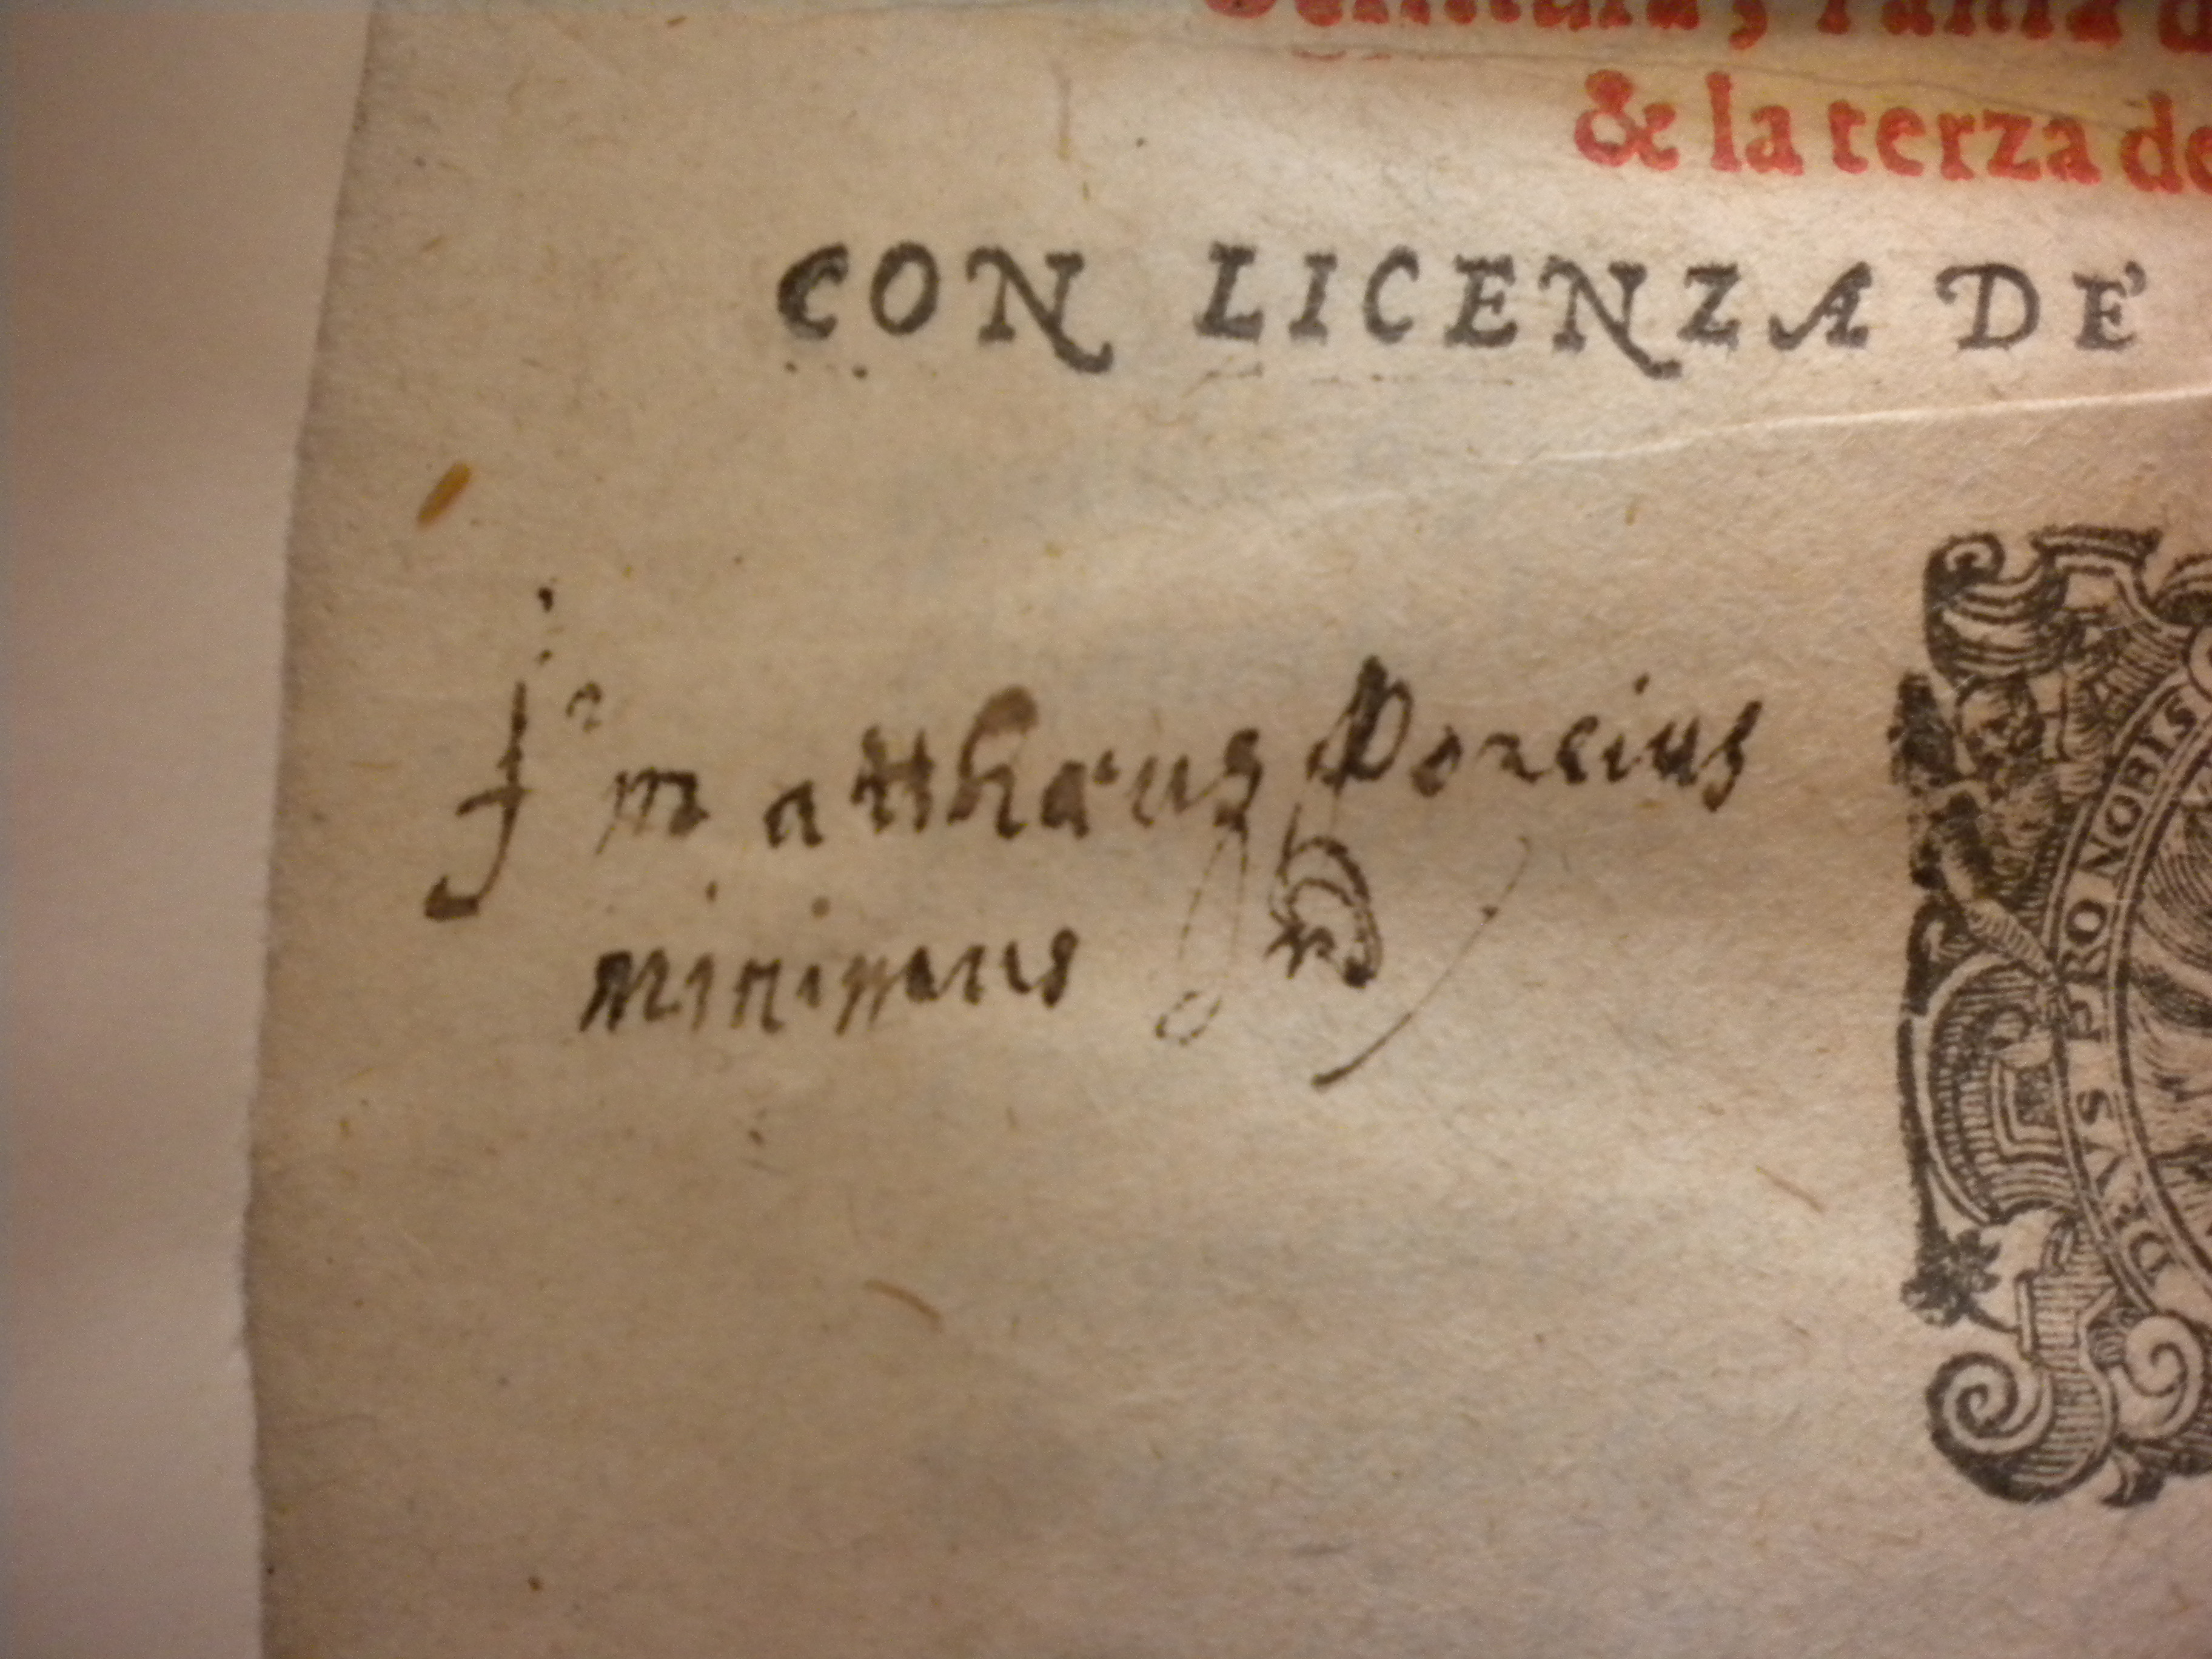 & la terza de
CON LICENZA DE'
fr matthæus Porcius
minimus
DEVS PRO NOBIS